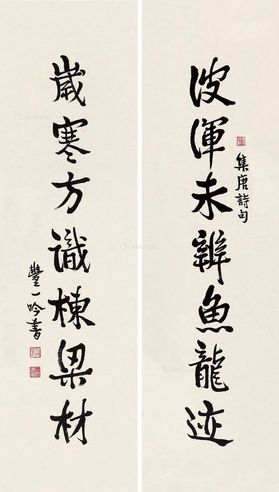 波渾未辨魚龍迹
集唐詩句
歲寒方識棟梁材
豐一吟書